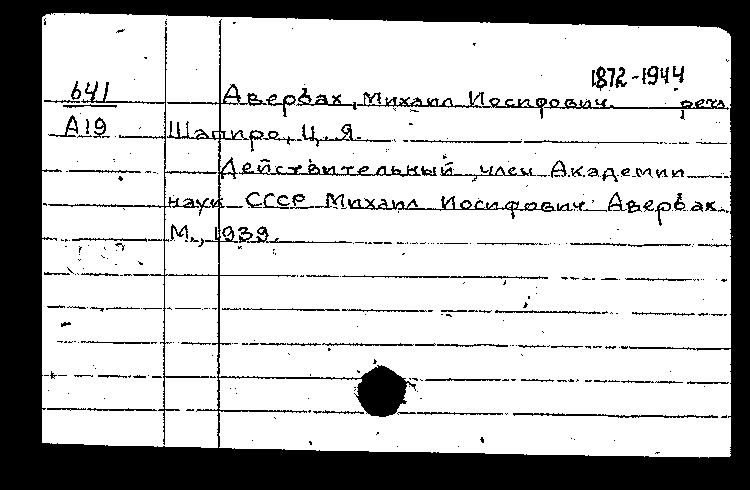 1872-1944
641 Авербах, Михаил Иосифович. речь
А19 Шапиро, Ц. Я.
Действительный член Академии
наук СССР Михаил Иосифович Авербах.
М., 1939.